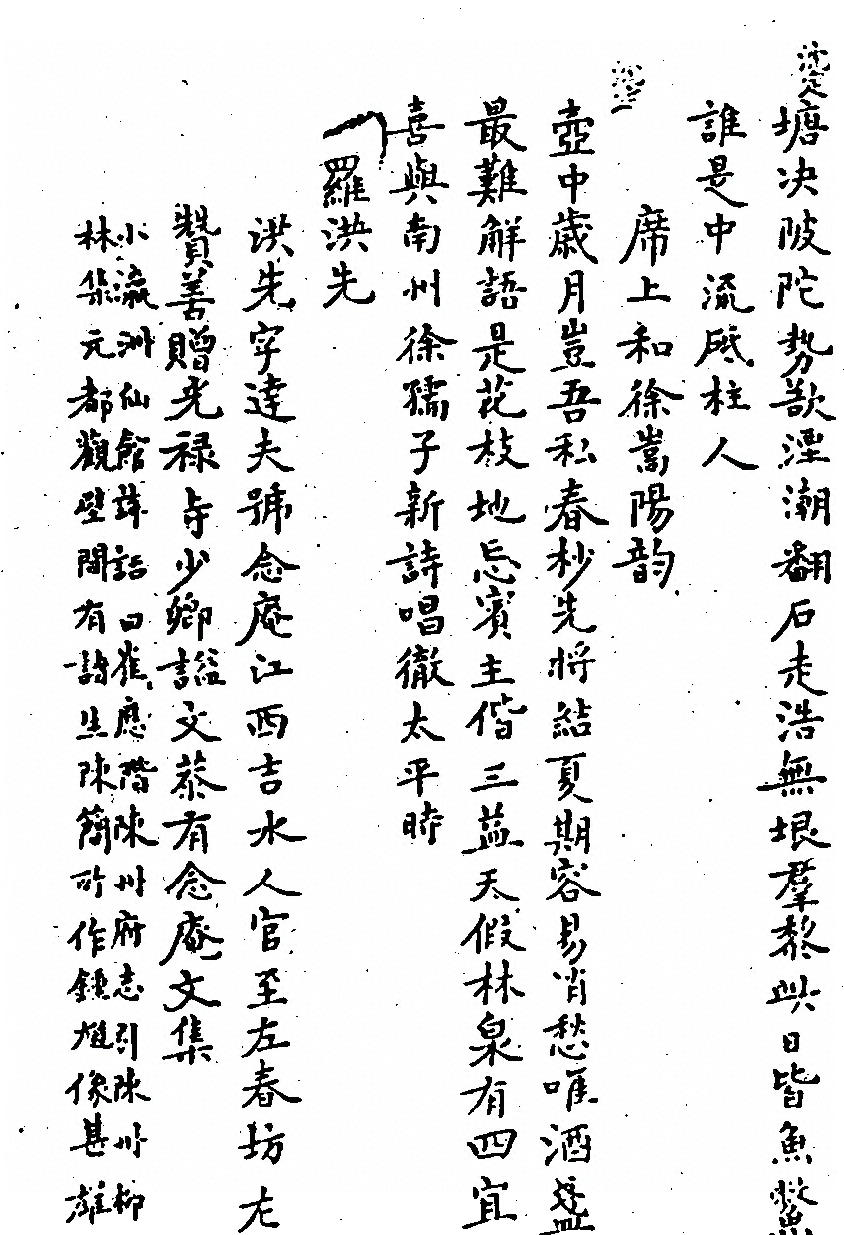 塘决陂陀勢欲湮潮翻石走浩無垠羣黎此日皆魚鱉
誰是中流砥柱人
席上和徐嵩陽韵
壺中歲月豈吾私春杪先將結夏期容易消愁唯酒盞
最難解語是花枝地忘賓主偕三益天假林泉有四宜
喜與南州徐孺子新詩唱徹太平時
羅洪先
洪先字達夫號念庵江西吉水人官至左春坊左
贊善贈光祿寺少卿謚文恭有念庵文集
小瀛洲仙館詩話曰崔應階陳州府志引陳州柳
林集元都觀壁間有諸生陳簡所作鍾馗像甚雄